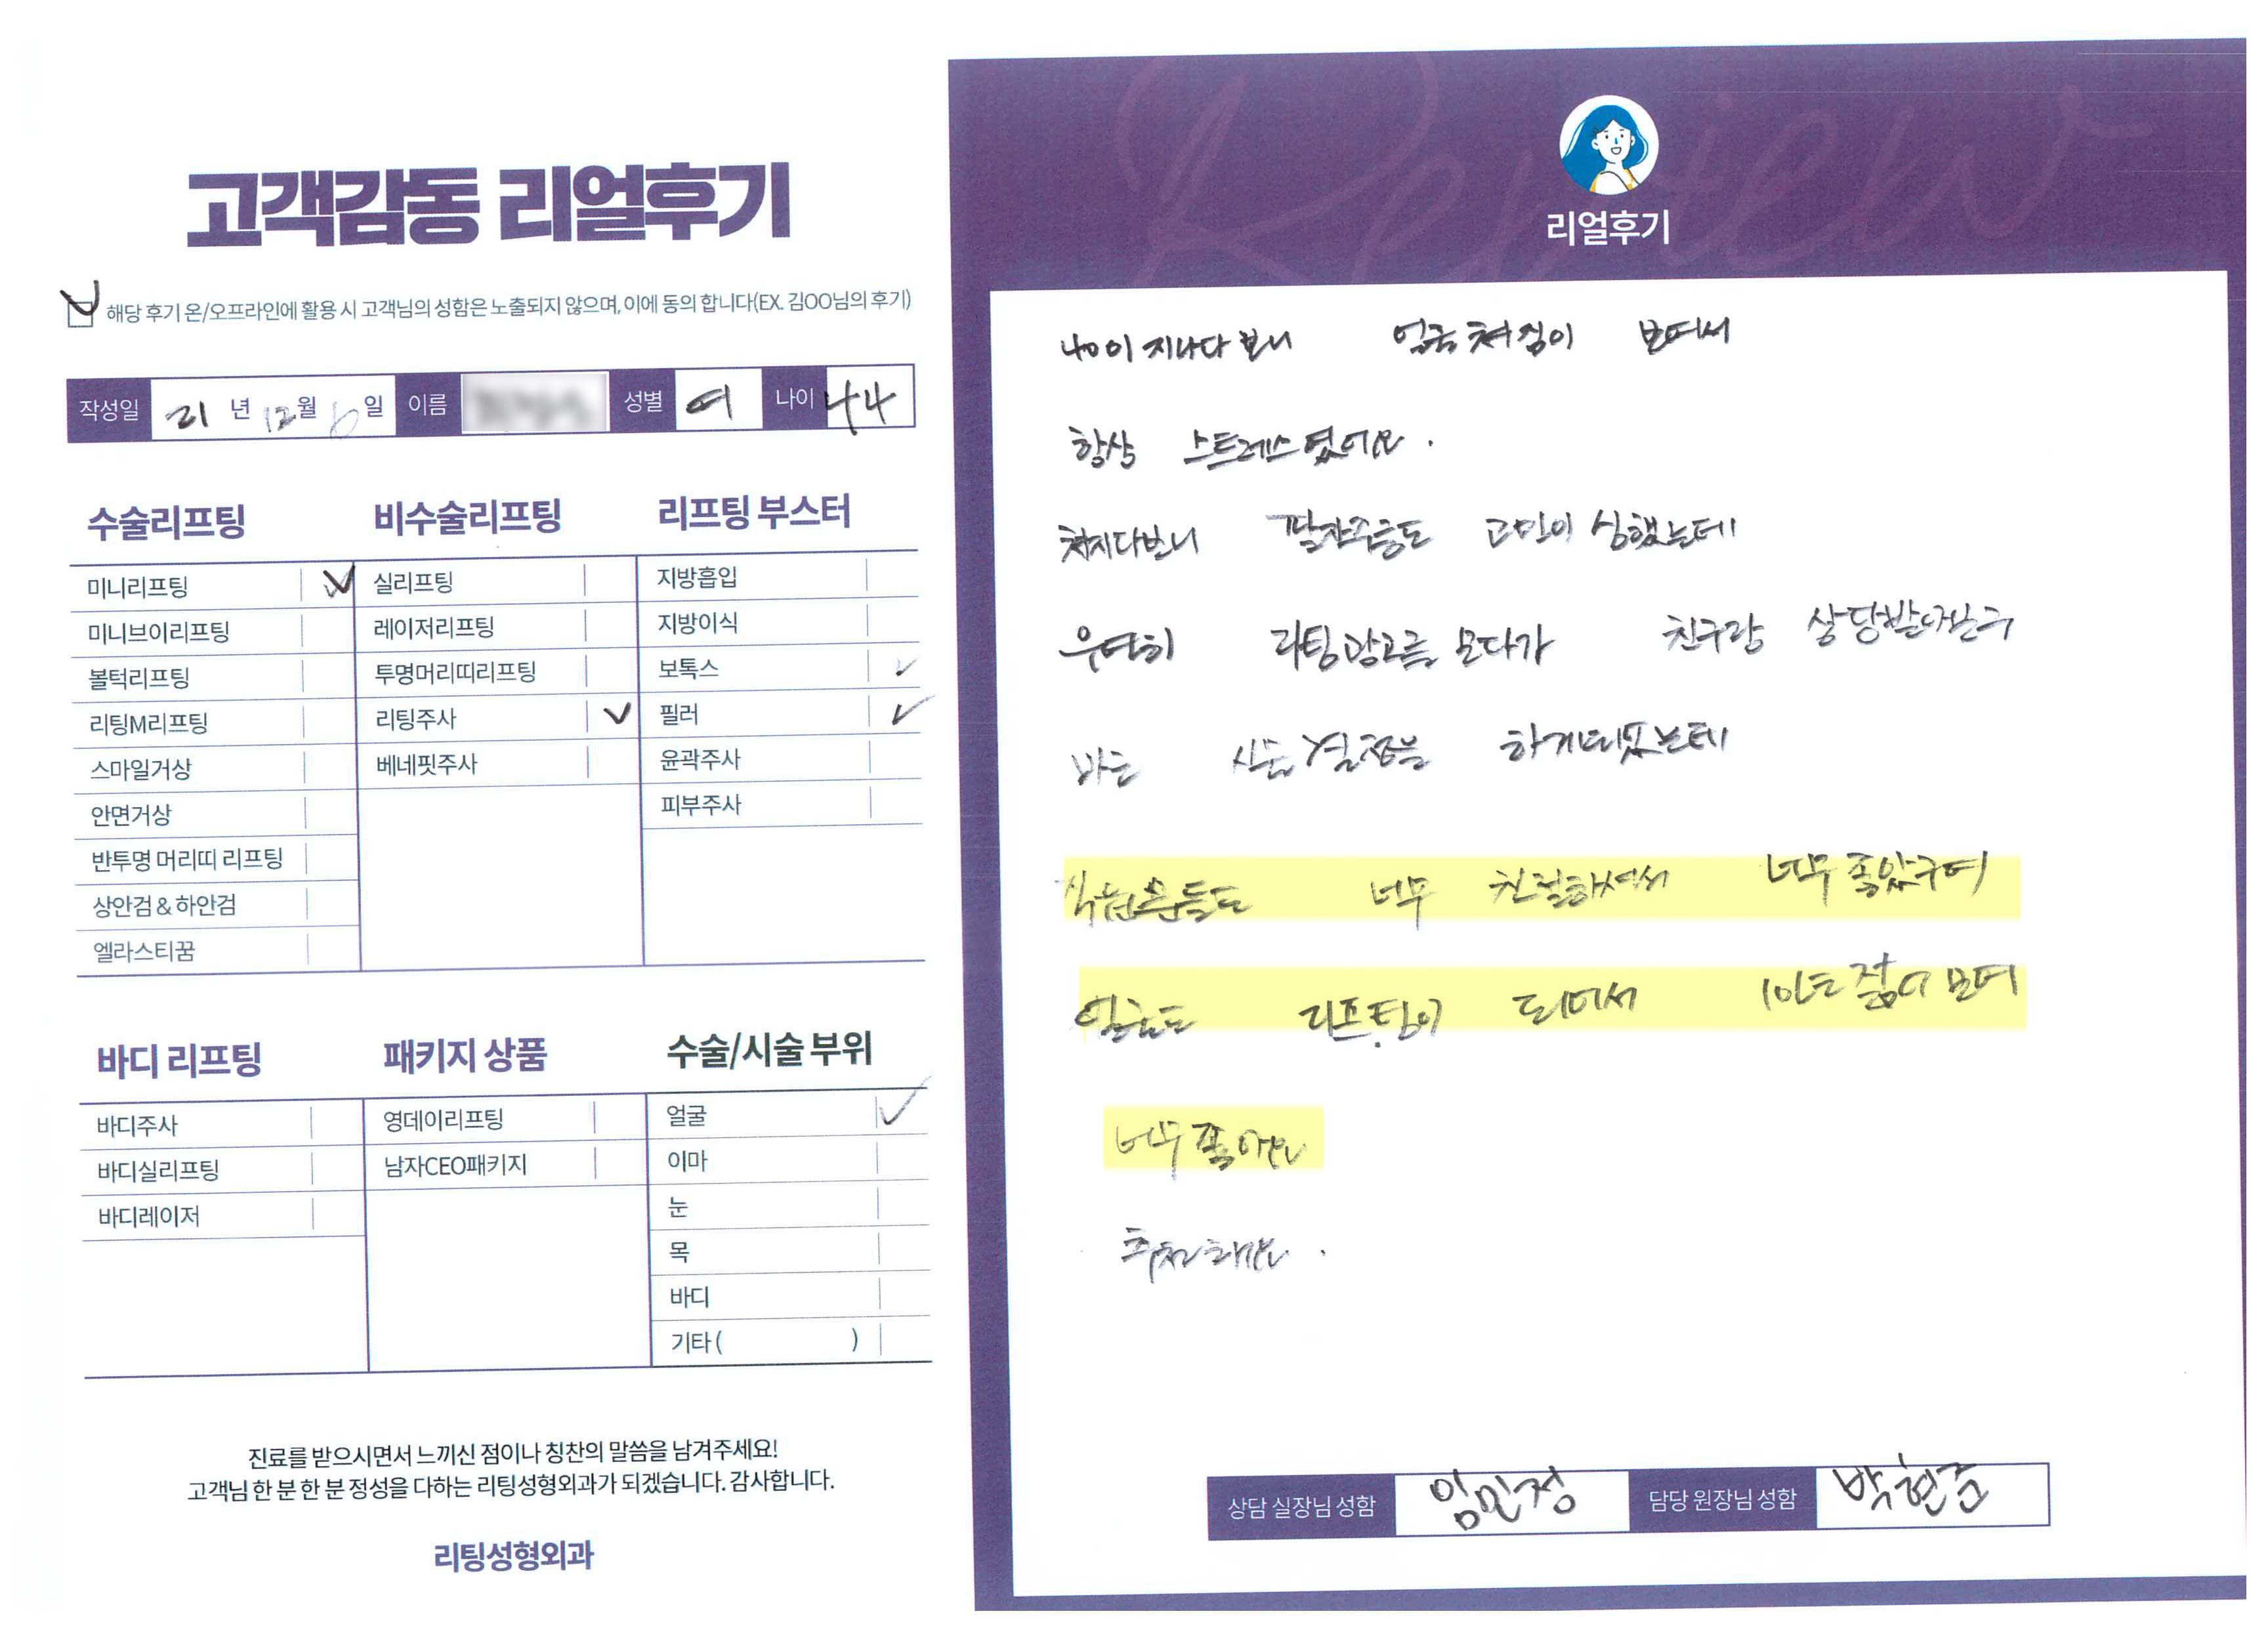 고객감동 리얼후기
해당 후기 온/오프라인에 활용 시 고객님의 성함은 노출되지 않으며, 이에 동의 합니다(EX. 김OO님의 후기)
작성일 21 년 12월 6일 이름 성별 여 나이 44
수술리프팅
미니리프팅
미니브이리프팅
볼턱리프팅
리팅M리프팅
스마일거상
안면거상
반투명 머리띠 리프팅
상안검 & 하안검
엘라스티꿈
비수술리프팅
실리프팅
레이저리프팅
투명머리띠리프팅
리팅주사
베네핏주사
리프팅 부스터
지방흡입
지방이식
보톡스
필러
윤곽주사
피부주사
바디 리프팅
바디주사
바디실리프팅
바디레이저
패키지 상품
영데이리프팅
남자CEO패키지
수술/시술 부위
얼굴
이마
눈
목
바디
기타 ( )
진료를 받으시면서 느끼신 점이나 칭찬의 말씀을 남겨주세요!
고객님 한 분 한 분 정성을 다하는 리팅성형외과가 되겠습니다. 감사합니다.
리팅성형외과
Review
리얼후기
40이 지나다 보니 얼굴 쳐짐이 보여서
항상 스트레스였어요.
쳐지다보니 팔자주름도 고민이 심했는데
우연히 리팅광고를 보다가 친구랑 상담받아보구
바로 시술결정을 하게되었는데
직원분들도 너무 친절하셔서 너무 좋았구여
얼굴도 리프팅이 되어서 10년는 젊어 보여
너무 좋아요
추천해요.
상담 실장님 성함 임민정 담당 원장님 성함 박현준